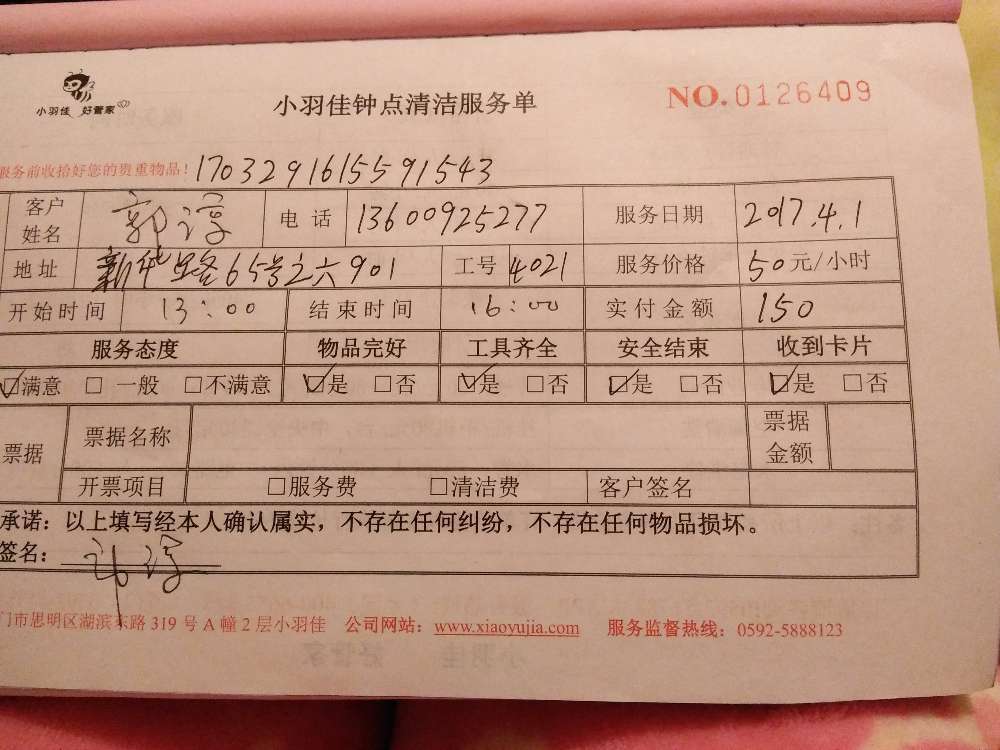 小羽佳 好管家
小羽佳钟点清洁服务单
NO.0126409
服务前收拾好您的贵重物品! 1703291615591543
客户姓名 郭淳 电话 13600925277 服务日期 2017.4.1
地址 新华路65号之六901 工号 4021 服务价格 50元/小时
开始时间 13:00 结束时间 16:00 实付金额 150
服务态度 物品完好 工具齐全 安全结束 收到卡片
☑满意 □一般 □不满意 ☑是 □否 ☑是 □否 ☑是 □否 ☑是 □否
票据 票据名称 票据金额
开票项目 □服务费 □清洁费 客户签名
承诺:以上填写经本人确认属实,不存在任何纠纷,不存在任何物品损坏。
签名: 郭淳
门市思明区湖滨东路 319 号 A 幢 2 层小羽佳 公司网站: www.xiaoyujia.com 服务监督热线: 0592-5888123